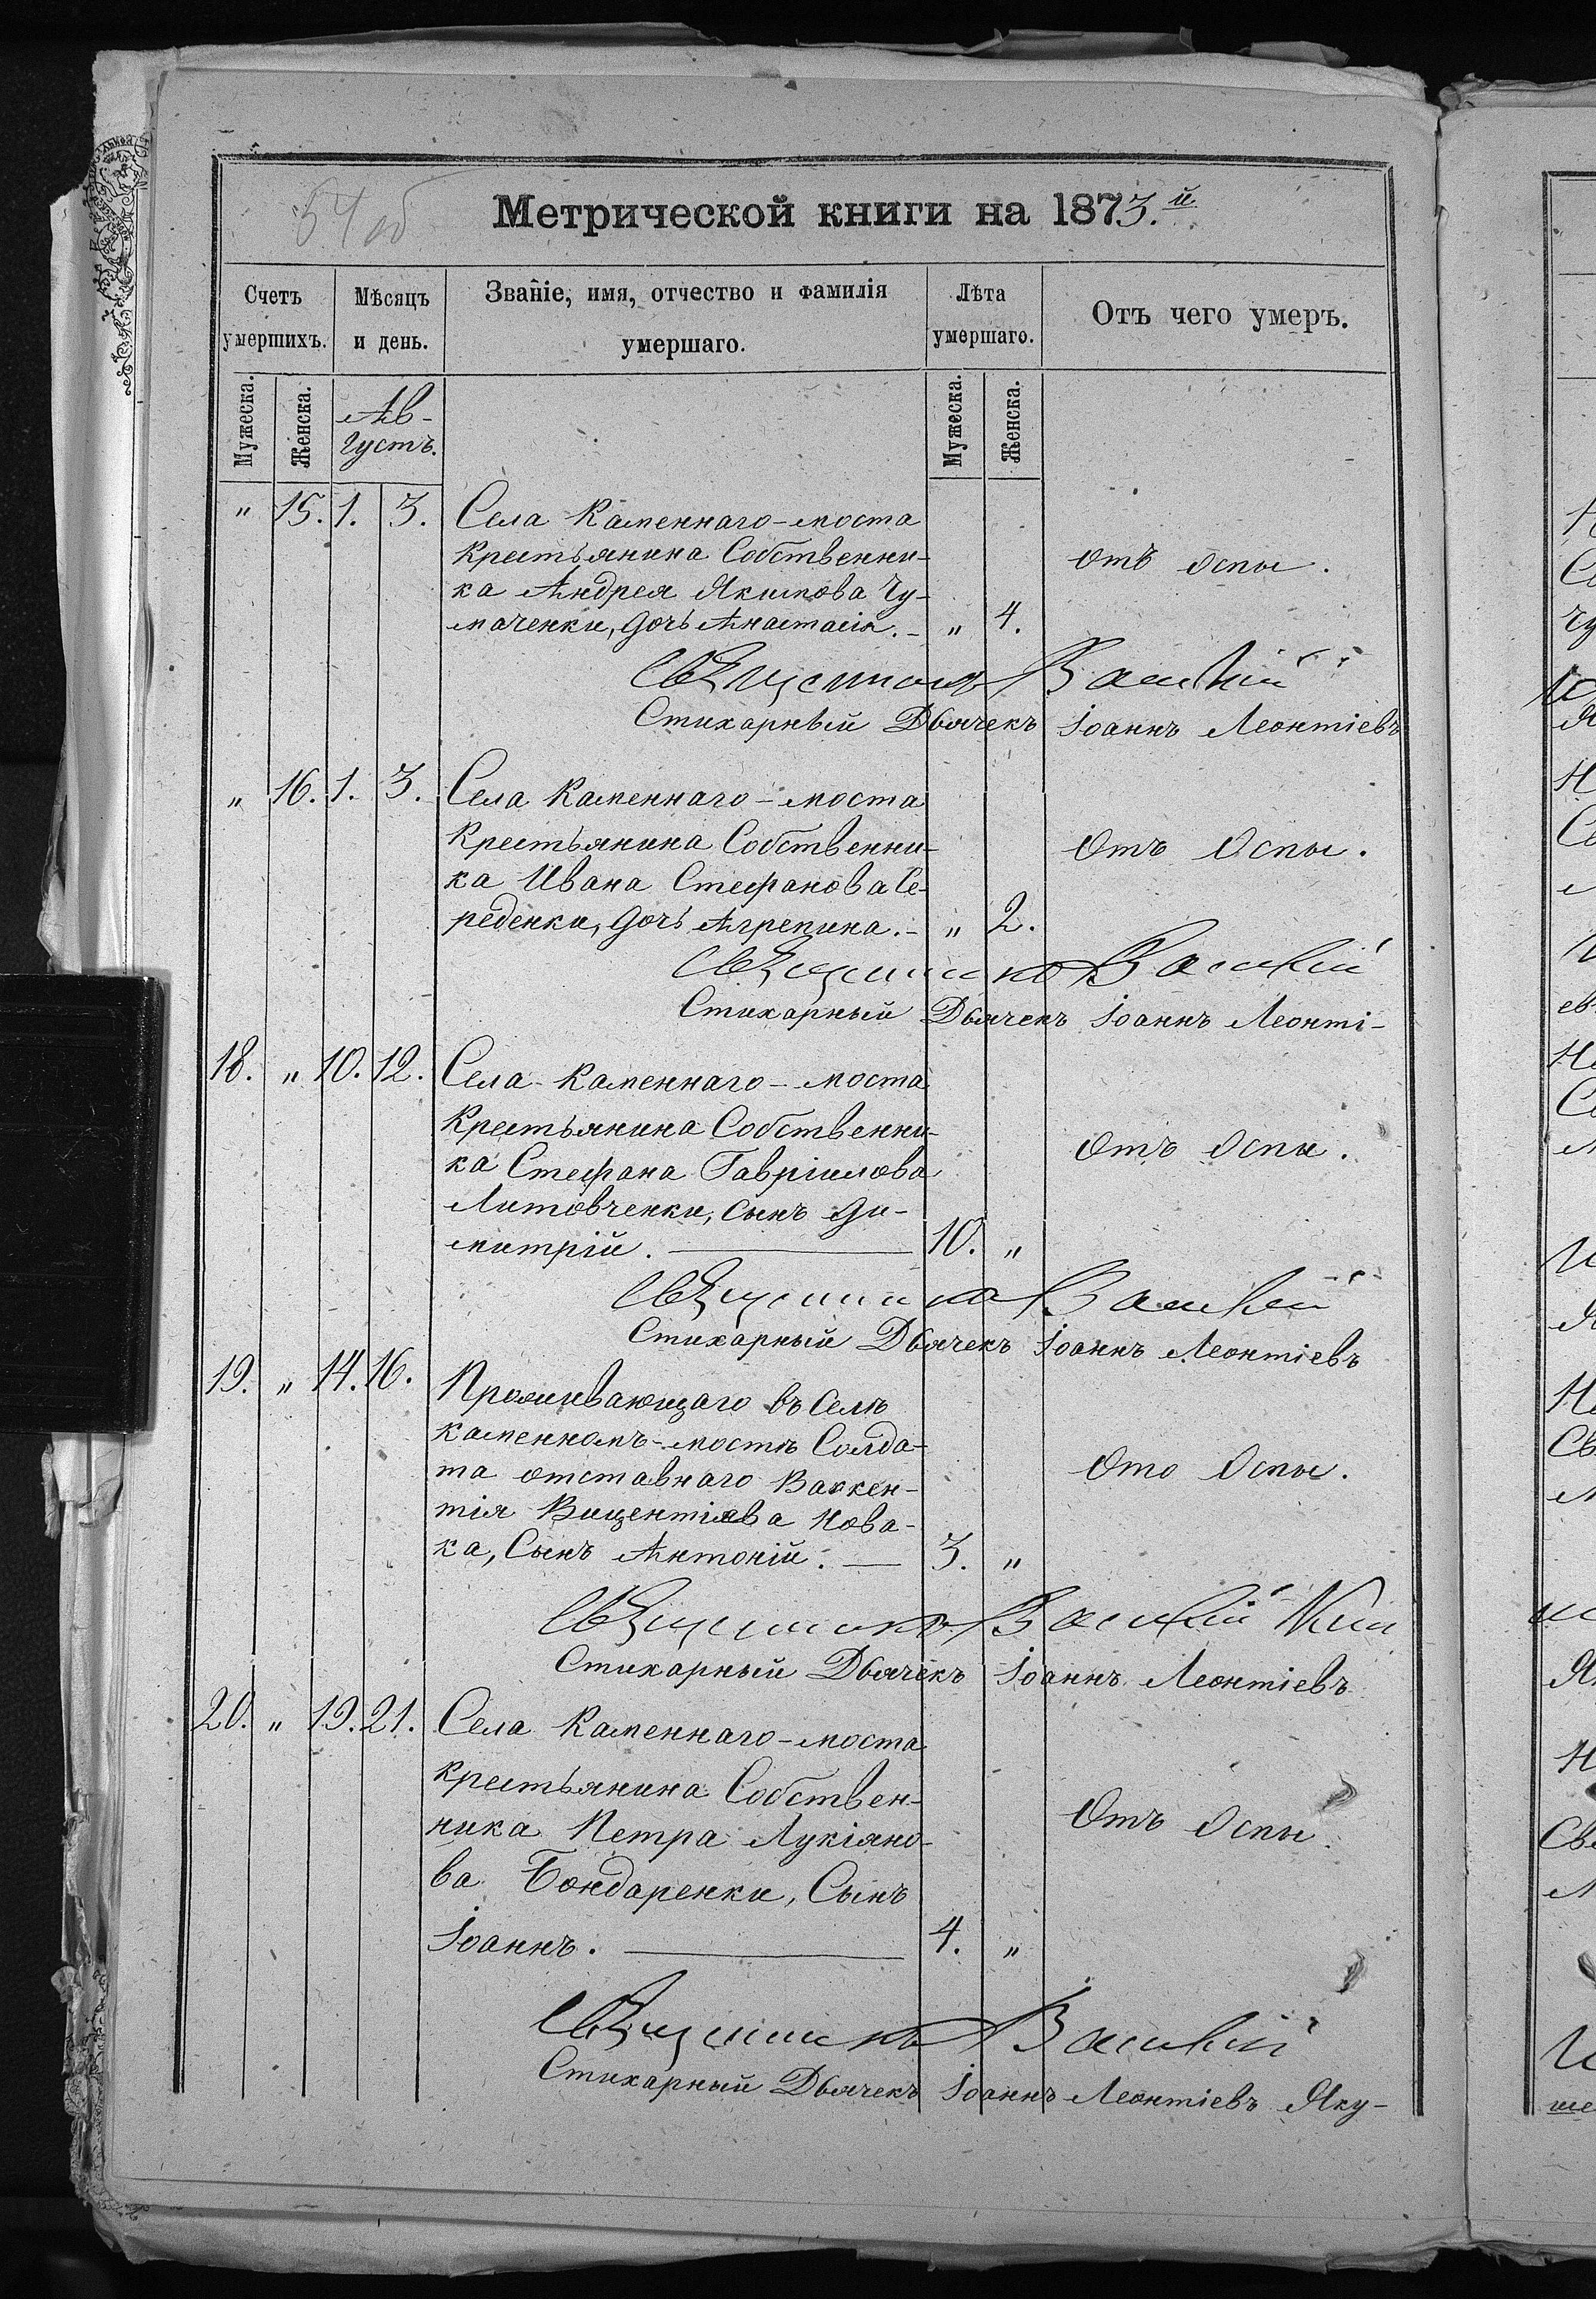 54 об
Метрической книги на 1873.й
Счетъ умершихъ.
Мѣсяцъ и день.
Званіе, имя, отчество и фамилія умершаго.
Лѣта умершаго.
Отъ чего умеръ.
Мужеска.
Женска.
Ав-
густъ.
Мужеска.
Женска.
" 15. 1. 3. Села Каменнаго-моста
Крестьянина Собственни-
отъ оспы.
ка Андрея Якимова Чу-
маченки, дочь Анастасія. - " 4.
Священникъ Василій
Стихарный Дьячекъ Іоаннъ Леонтіевъ
" 16. 1. 3. Села Каменнаго-моста
Крестьянина Собственни-
Отъ Оспы.
ка Ивана Стефанова Се-
реденки, дочь Агрепина. - " 2.
Священникъ Василій
Стихарный Дьячекъ Іоаннъ Леонті-
18. " 10. 12. Села Каменнаго-моста
Крестьянина Собственни-
Отъ Оспы.
ка Стефана Гавріилова
Литовченки, сынъ Ди-
митрій. 10. "
Священникъ Василій
Стихарный Дьячекъ Іоаннъ Леонтіевъ
19. " 14. 16. Проживающаго въ Селѣ
Каменномъ-мостѣ Солда-
та отставнаго Викен-
Ото Оспы.
тія Вицентіева Нова-
ка, Сынъ Антоній. 3. "
Священникъ Василій
Стихарный Дьячекъ Іоаннъ Леонтіевъ
20. " 19. 21. Села Каменнаго-моста
Крестьянина Собствен-
ника Петра Лукіяно-
Отъ Оспы.
ва Бондаренки, Сынъ
Іоаннъ. 4. "
Священникъ Василій
Стихарный Дьячекъ Іоаннъ Леонтіевъ Яку-